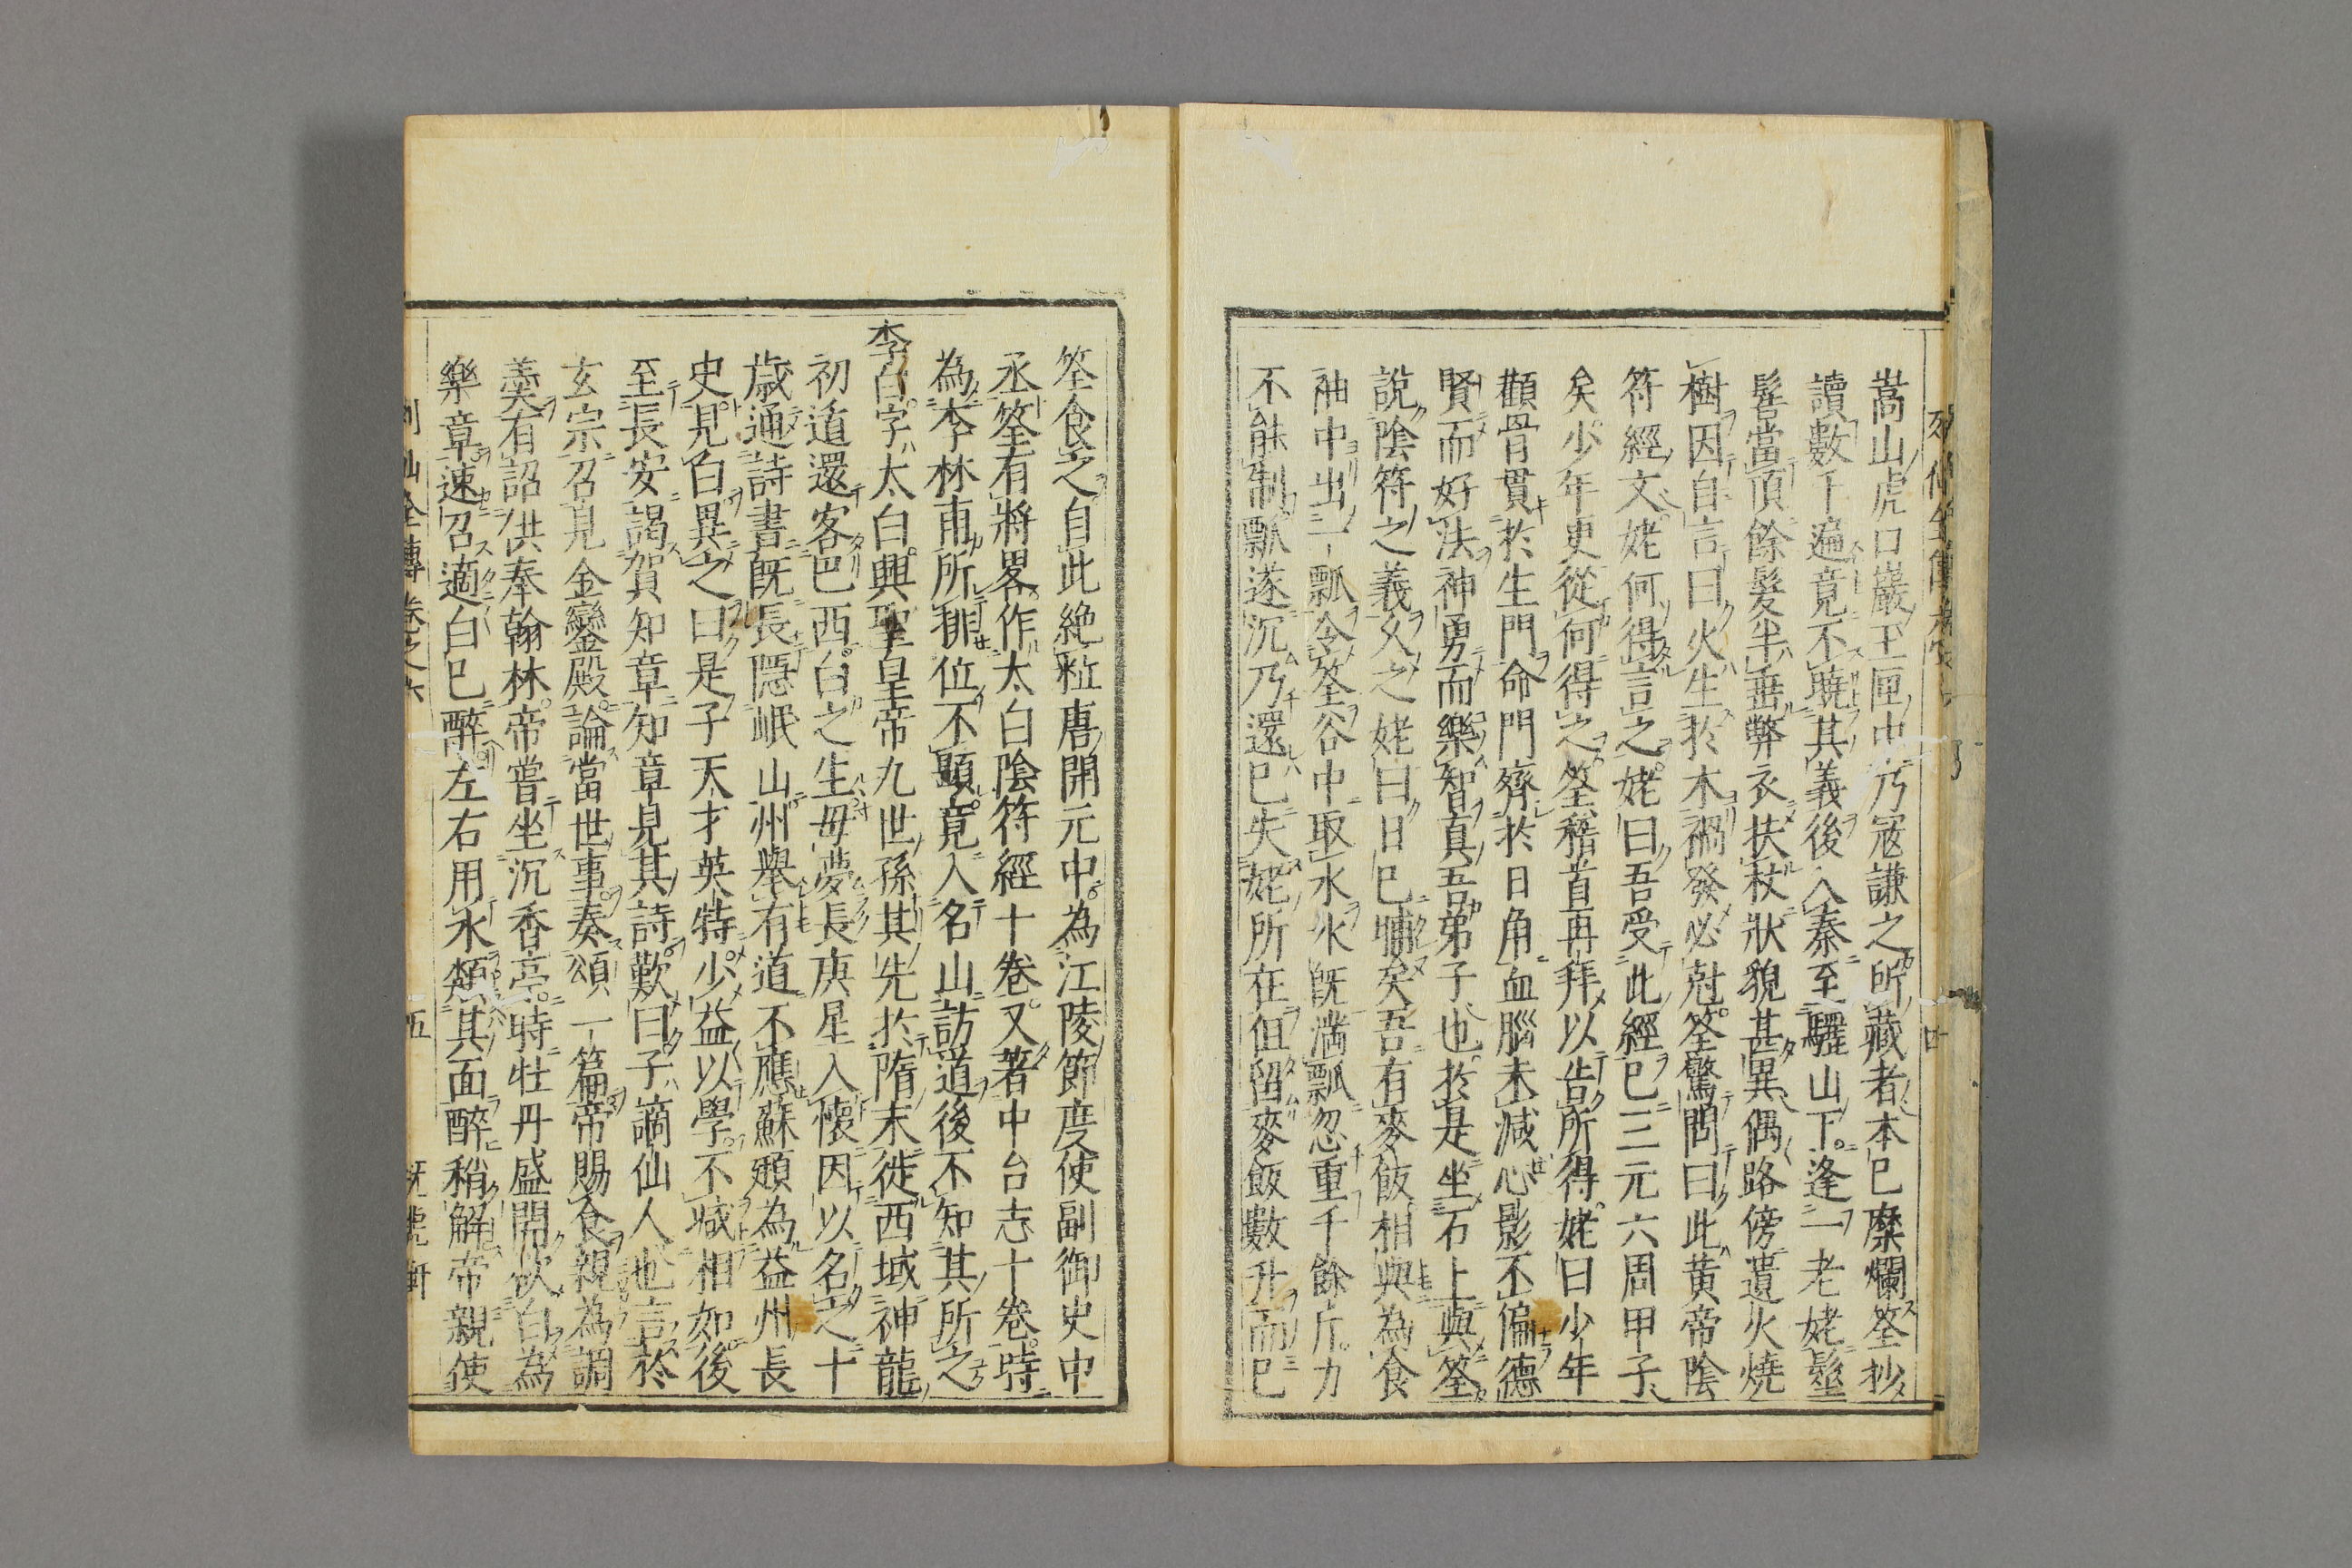 嵩山虎口巖玉匣中乃宼謙之所藏者本已糜爛筌抄
讀數千遍竟不曉其義後入秦至驪山下逢一老姥髽
髻當頂餘髮半垂弊衣扶杖狀貌甚異偶路傍遺火燒
樹因自言曰火生於木禍發必尅筌驚問曰此黃帝陰
符經文姥何得言之姥曰吾受此經已三元六周甲子
矣少年更從何得之筌稽首再拜以告所得姥曰少年
顴骨貫於生門命門齊於日角血腦未減心影不偏德
賢而好法神勇而樂智真吾弟子也於是坐石上與筌
說陰符之義久之姥曰日已晡矣吾有麥飯相與為食
袖中出一瓢令筌谷中取水水既滿瓢忽重千餘斤力
不能制瓢遂沉乃還已失姥所在但留麥飯數升而已
筌食之自此絶粒唐開元中為江陵節度使副御史中
丞筌有將畧作太白陰符經十卷又著中台志十卷時
為李林甫所排位不顯竟入名山訪道後不知其所之
李白字太白興聖皇帝九世孫其先於隋末徙西域神龍
初遁還客巴西白之生母夢長庚星入懷因以名之十
歲通詩書既長隱岷山州舉有道不應蘇頲為益州長
史見白異之曰是子天才英特少益以學不減相如後
至長安謁賀知章知章見其詩歎曰子謫仙人也言於
玄宗召見金鑾殿論當世事奏頌一篇帝賜食親為調
羹有詔供奉翰林帝嘗坐沉香亭時牡丹盛開欲白為
樂章速召適白已醉左右用水頮其面醉稍解帝親使
列仙全傳卷之六 五